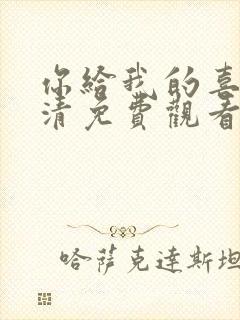 你給我的喜
清免費觀看
哈薩克達斯坦